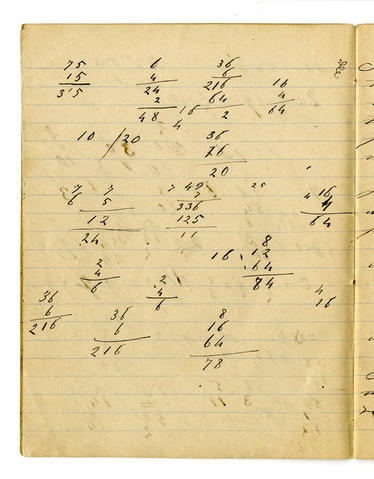 75 6 36
15 4 6 16
3'5 24 216 4
2 64 64
48 16 2
4
10 /20 36
76
20
7 7 7 49 25 4 16
6 5 7 4
12 336 64
24 125
11
8
2 16 12
4 2 64
6 4 84 4
36 6 16
6 36 8
216 6 16
216 64
78